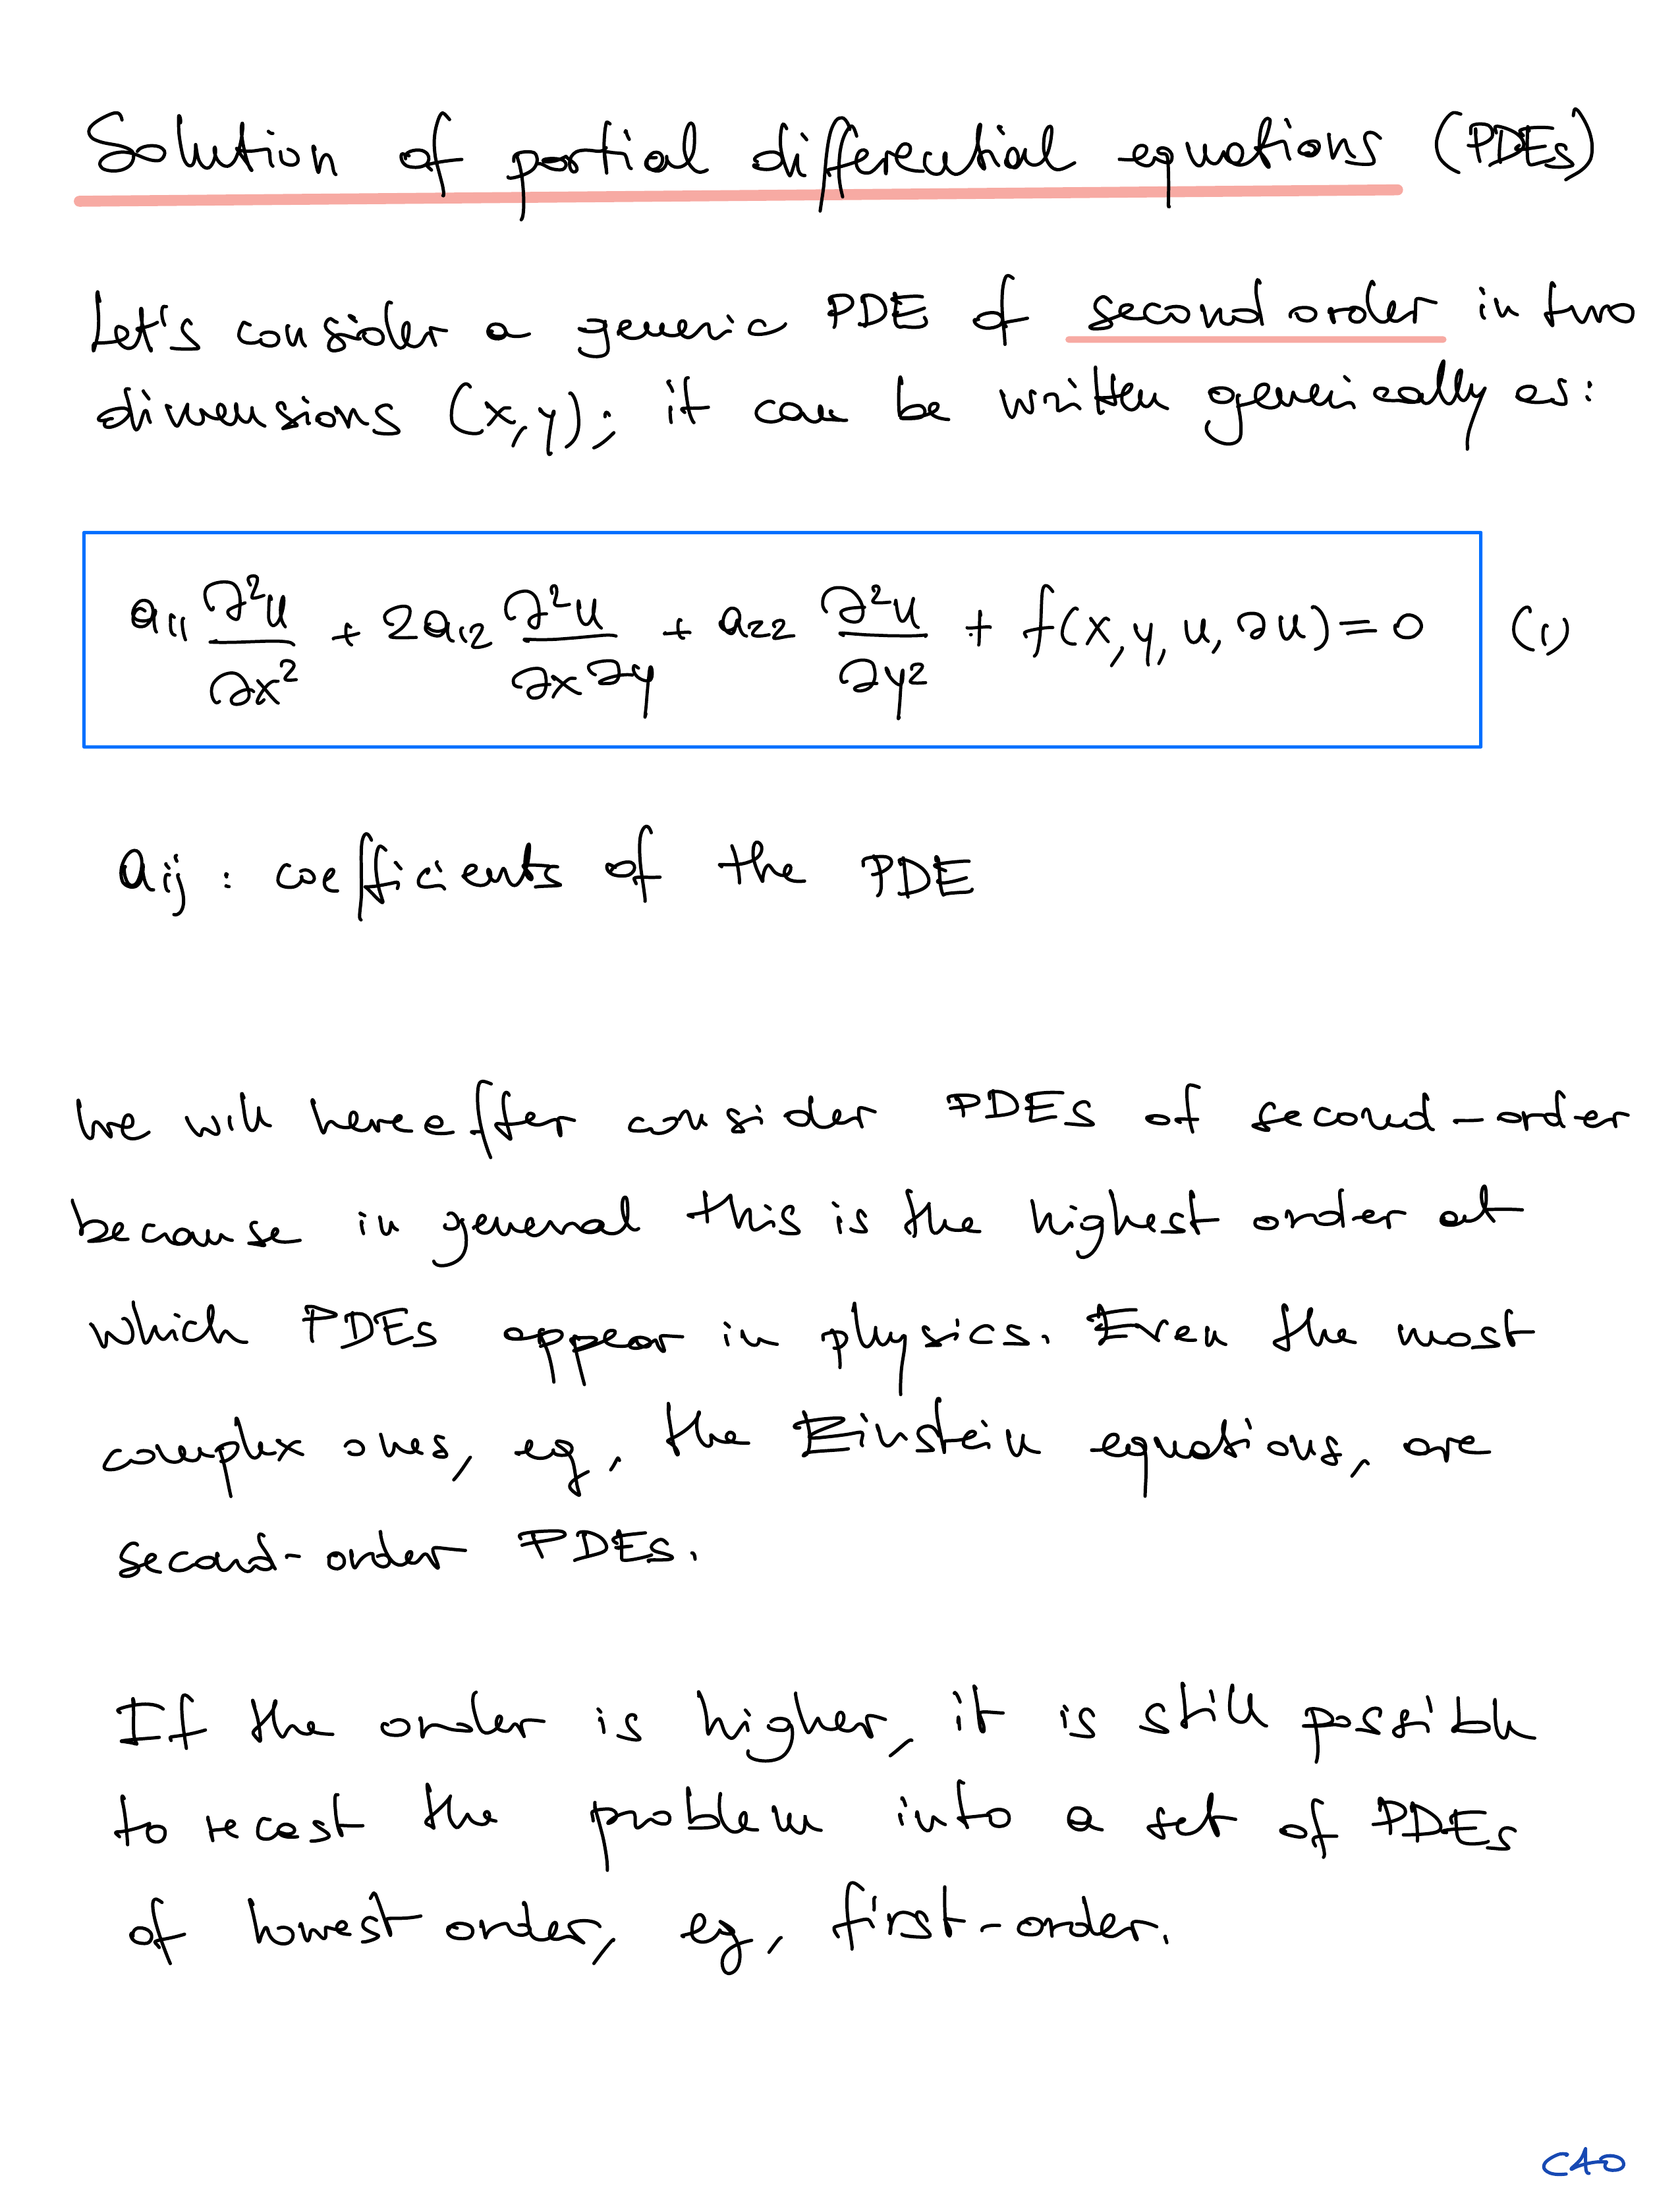 Solution of partial differential equations (PDEs)
Let's consider a generic PDE of second order in two
dimensions (x,y); it can be written generically as:
a₁₁ ∂²u/∂x² + 2a₁₂ ∂²u/∂x∂y + a₂₂ ∂²u/∂y² + f(x, y, u, ∂u) = 0 (1)
aᵢⱼ : coefficients of the PDE
We will hereafter consider PDEs of second-order
because in general this is the highest order at
which PDEs appear in physics. Even the most
complex ones, eg, the Einstein equations, are
second-order PDEs.
If the order is higher, it is still possible
to recast the problem into a set of PDEs
of lowest order, eg, first-order.
C40